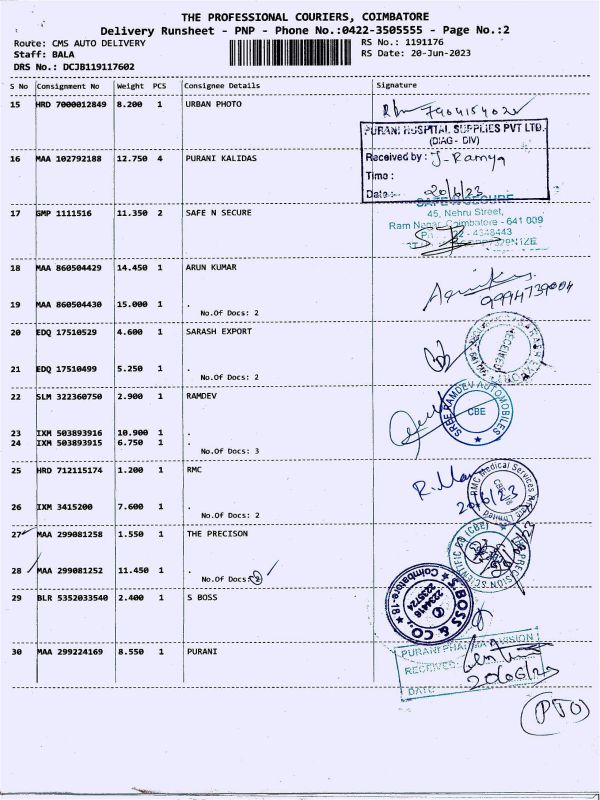 THE PROFESSIONAL COURIERS, COIMBATORE
Delivery Runsheet - PNP - Phone No.:0422-3505555 - Page No.:2
Route: CMS AUTO DELIVERY RS No.: 1191176
Staff: BALA RS Date: 20-Jun-2023
DRS No.: DCJB119117602
S No Consignment No Weight PCS Consignee Details Signature
15 HRD 7000012849 8.200 1 URBAN PHOTO
PURANI HOSPITAL SUPPLIES PVT LTD.
(DIAG - DIV)
16 MAA 102792188 12.750 4 PURANI KALIDAS Received by : J-Ramya
Time :
Date : 20/6/23
17 GMP 1111516 11.350 2 SAFE N SECURE SAFE N SECURE
45, Nehru Street,
Ram Nagar, Coimbatore - 641 009
18 MAA 860504429 14.450 1 ARUN KUMAR
19 MAA 860504430 15.000 1 .
No.Of Docs: 2
20 EDQ 17510529 4.600 1 SARASH EXPORT
RECEIVED
21 EDQ 17510499 5.250 1 .
No.Of Docs: 2
22 SLM 322360750 2.900 1 RAMDEV
SREE RAMDEV AUTOMOBILES
CBE
23 IXM 503893916 10.900 1 .
24 IXM 503893915 6.750 1 .
No.Of Docs: 3
25 HRD 712115174 1.200 1 RMC
RMC Medical Services
20/6/23
26 IXM 3415200 7.600 1 .
No.Of Docs: 2
27 MAA 299081258 1.550 1 THE PRECISON
28 MAA 299081252 11.450 1 .
No.Of Docs: 2
29 BLR 5352033540 2.400 1 S BOSS
S. BOSS & CO.,
Coimbatore-18
30 MAA 299224169 8.550 1 PURANI
PURANI PHARMA DIVISION
RECEIVED
DATE
(PTO)